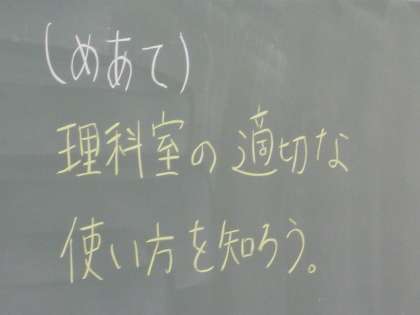 (めあて)
理科室の適切な
使い方を知ろう。